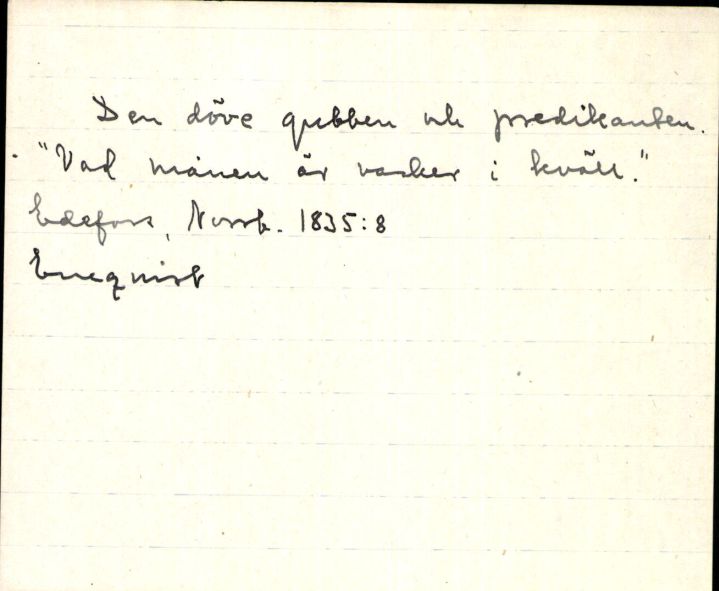 Den döve gubben och predikanten.
"Vad månen är vacker i kväll."
Edefors, Norrb. 1835:8
Enequist